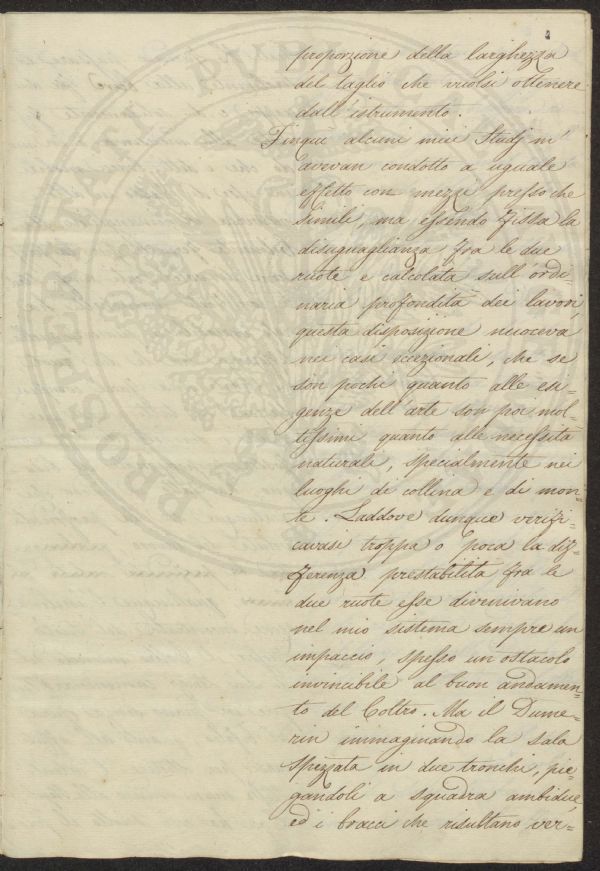 proporzione della larghezza
del taglio che vuolsi ottenere
dall'istrumento.
Finqui alcuni miei Studj m'
avevan condotto a uguale
effetto con mezzi presso che
simili, ma essendo fissa la
disuguaglianza fra le due
ruote e calcolata sull'ordi-
naria profondità dei lavori,
questa disposizione nuoceva
nei casi eccezionali, che se
son pochi quanto alle esi-
genze dell'arte son poi mol-
tissimi quanto alle necessità
naturali, specialmente nei
luoghi di collina e di mon-
te. Laddove dunque verifi-
cavasi troppa o poca la dif-
ferenza prestabilita fra le
due ruote esse divenivano
nel mio sistema sempre un
impaccio, spesso un ostacolo
invincibile al buon andamen-
to del Coltro. Ma il Dume-
rin immaginando la sala
spezzata in due tronchi, pie-
gandoli a squadra ambidue
ed i bracci che risultano ver-
PROSPERITATI PVBLIC